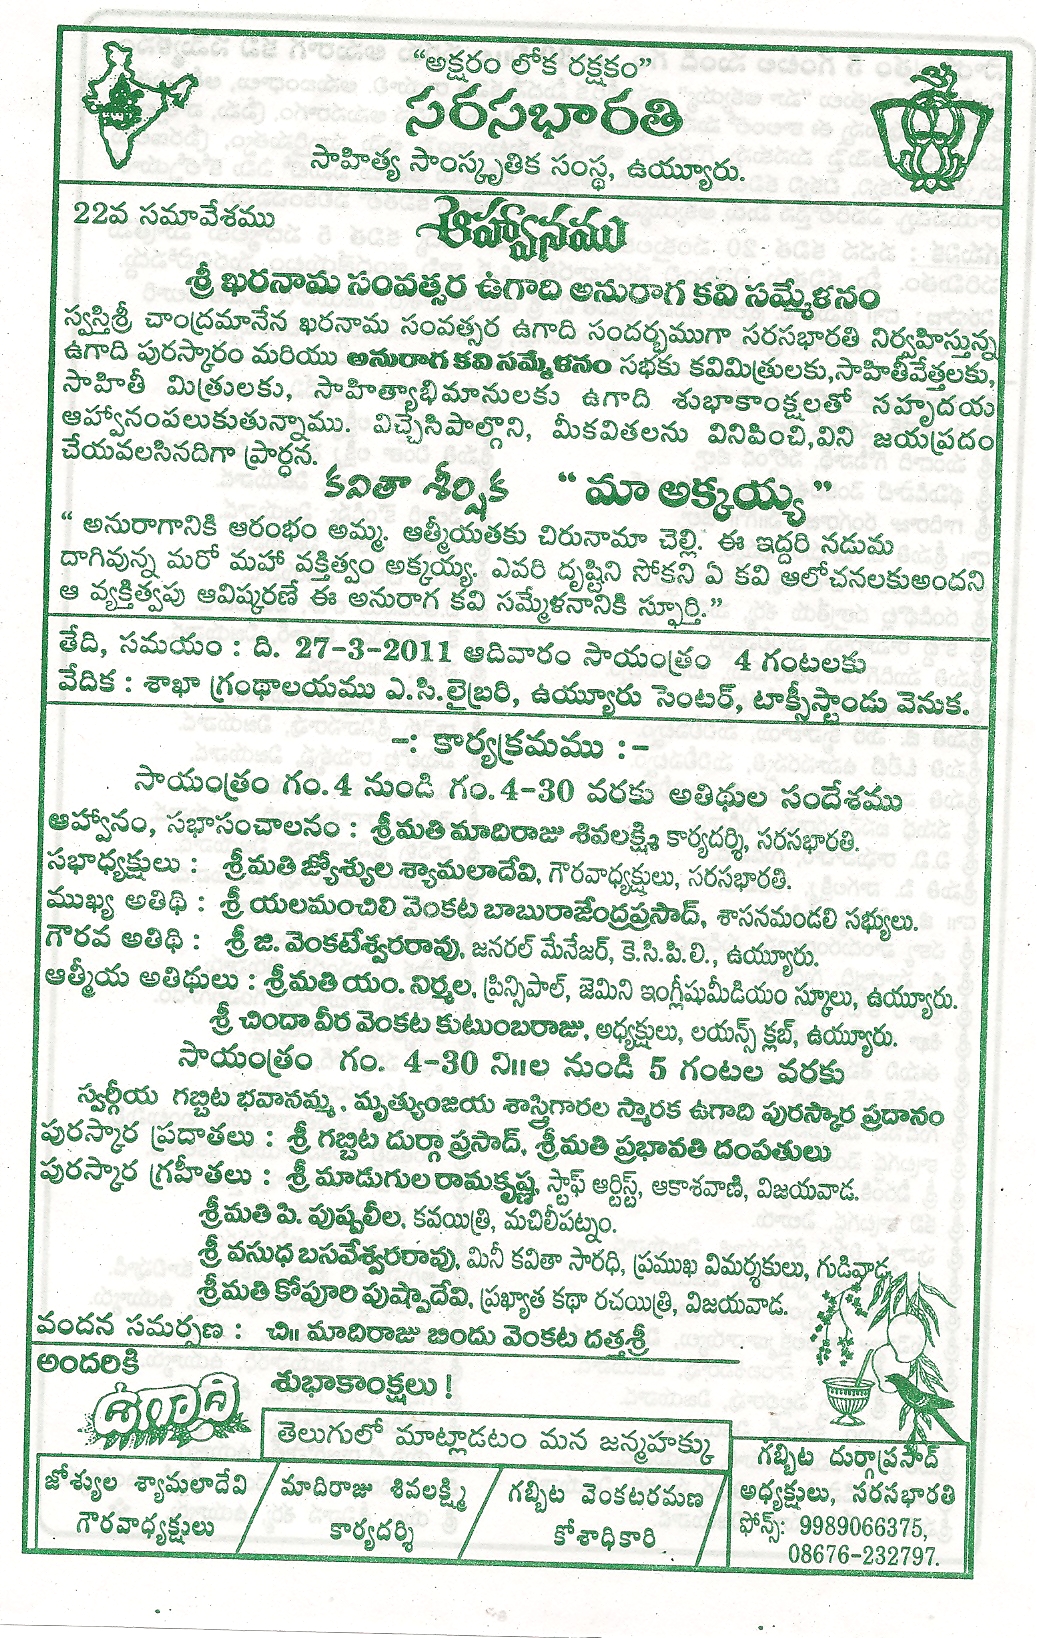 “అక్షరం లోక రక్షకం”
సరసభారతి
సాహిత్య సాంస్కృతిక సంస్థ, ఉయ్యూరు.
22వ సమావేశము
ఆహ్వానము
శ్రీ ఖరనామ సంవత్సర ఉగాది అనురాగ కవి సమ్మేళనం
స్వస్తిశ్రీ చాంద్రమానేన ఖరనామ సంవత్సర ఉగాది సందర్భముగా సరసభారతి నిర్వహిస్తున్న
ఉగాది పురస్కారం మరియు అనురాగ కవి సమ్మేళనం సభకు కవిమిత్రులకు,సాహితీవేత్తలకు,
సాహితీ మిత్రులకు, సాహిత్యాభిమానులకు ఉగాది శుభాకాంక్షలతో సహృదయ
ఆహ్వానంపలుకుతున్నాము. విచ్చేసిపాల్గొని, మీకవితలను వినిపించి,విని జయప్రదం
చేయవలసినదిగా ప్రార్ధన.
కవితా శీర్షిక “ మా అక్కయ్య ”
“ అనురాగానికి ఆరంభం అమ్మ. ఆత్మీయతకు చిరునామా చెల్లి. ఈ ఇద్దరి నడుమ
దాగివున్న మరో మహా వక్తిత్వం అక్కయ్య. ఎవరి దృష్టిని సోకని ఏ కవి ఆలోచనలకుఅందని
ఆ వ్యక్తిత్వపు ఆవిష్కరణే ఈ అనురాగ కవి సమ్మేళనానికి స్ఫూర్తి.”
తేది, సమయం : ది. 27-3-2011 ఆదివారం సాయంత్రం 4 గంటలకు
వేదిక : శాఖా గ్రంథాలయము ఎ.సి.లైబ్రరి, ఉయ్యూరు సెంటర్, టాక్సీస్టాండు వెనుక.
-: కార్యక్రమము :-
సాయంత్రం గం.4 నుండి గం.4-30 వరకు అతిథుల సందేశము
ఆహ్వానం, సభాసంచాలనం : శ్రీమతి మాదిరాజు శివలక్ష్మి కార్యదర్శి, సరసభారతి.
సభాధ్యక్షులు : శ్రీమతి జ్యోశ్యుల శ్యామలాదేవి, గౌరవాధ్యక్షులు, సరసభారతి.
ముఖ్య అతిథి : శ్రీ యలమంచిలి వెంకట బాబురాజేంద్రప్రసాద్, శాసనమండలి సభ్యులు.
గౌరవ అతిథి : శ్రీ జి. వెంకటేశ్వరరావు, జనరల్ మేనేజర్, కె.సి.పి.లి., ఉయ్యూరు.
ఆత్మీయ అతిథులు : శ్రీమతి యం. నిర్మల, ప్రిన్సిపాల్, జెమిని ఇంగ్లీషుమీడియం స్కూలు, ఉయ్యూరు.
శ్రీ చిందా వీర వెంకట కుటుంబరాజు, అధ్యక్షులు, లయన్స్ క్లబ్, ఉయ్యూరు.
సాయంత్రం గం. 4-30 ని॥ల నుండి 5 గంటల వరకు
స్వర్గీయ గబ్బిట భవానమ్మ, మృత్యుంజయ శాస్త్రిగారల స్మారక ఉగాది పురస్కార ప్రదానం
పురస్కార ప్రదాతలు : శ్రీ గబ్బిట దుర్గా ప్రసాద్, శ్రీమతి ప్రభావతి దంపతులు
పురస్కార గ్రహీతలు : శ్రీ మాడుగుల రామకృష్ణ, స్టాఫ్ ఆర్టిస్ట్, ఆకాశవాణి, విజయవాడ.
శ్రీమతి పి. పుష్పలీల, కవయిత్రి, మచిలీపట్నం.
శ్రీ వసుధ బసవేశ్వరరావు, మినీ కవితా సారధి, ప్రముఖ విమర్శకులు, గుడివాడ.
శ్రీమతి కోపూరి పుష్పాదేవి, ప్రఖ్యాత కథా రచయిత్రి, విజయవాడ.
వందన సమర్పణ : చి॥ మాదిరాజు బిందు వెంకట దత్తశ్రీ
అందరికి
ఉగాది
శుభాకాంక్షలు !
తెలుగులో మాట్లాడటం మన జన్మహక్కు
జోశ్యుల శ్యామలాదేవి
గౌరవాధ్యక్షులు
మాదిరాజు శివలక్ష్మి
కార్యదర్శి
గబ్బిట వెంకటరమణ
కోశాధికారి
గబ్బిట దుర్గాప్రసాద్
అధ్యక్షులు, సరసభారతి
ఫోన్స్: 9989066375,
08676-232797.